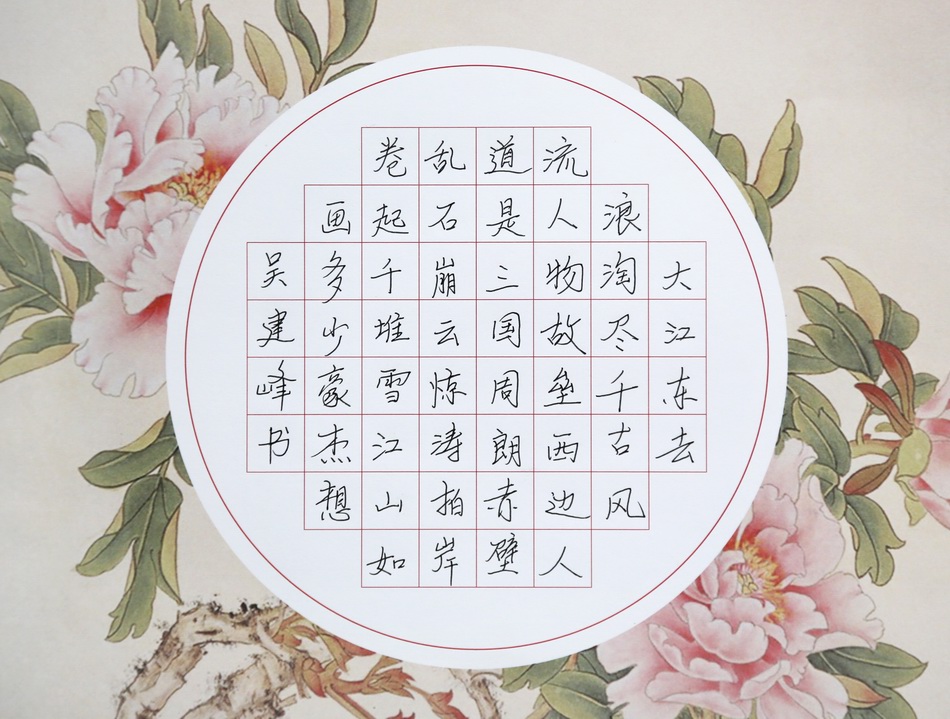 大江东去
浪淘尽千古风
流人物故垒西边人
道是三国周朗赤壁
乱石崩云惊涛拍岸
卷起千堆雪江山如
画多少豪杰想
吴建峰书